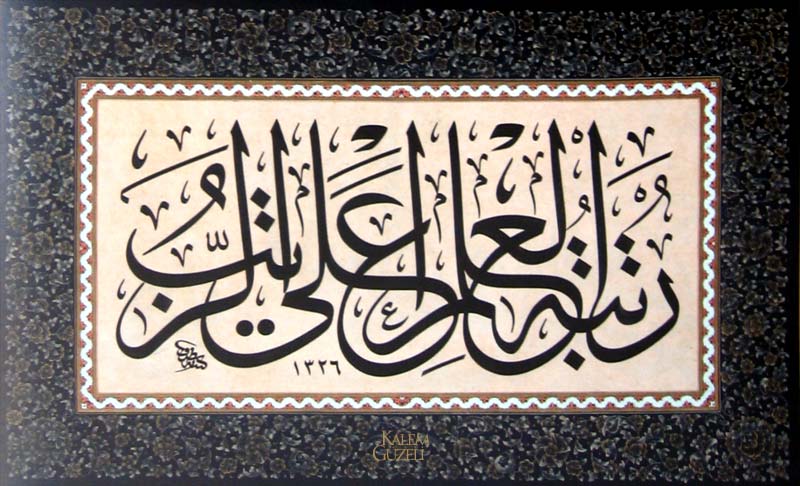 رتبة العلم أعلى الرتب
١٣٢٦
KALEM
GUZELİ